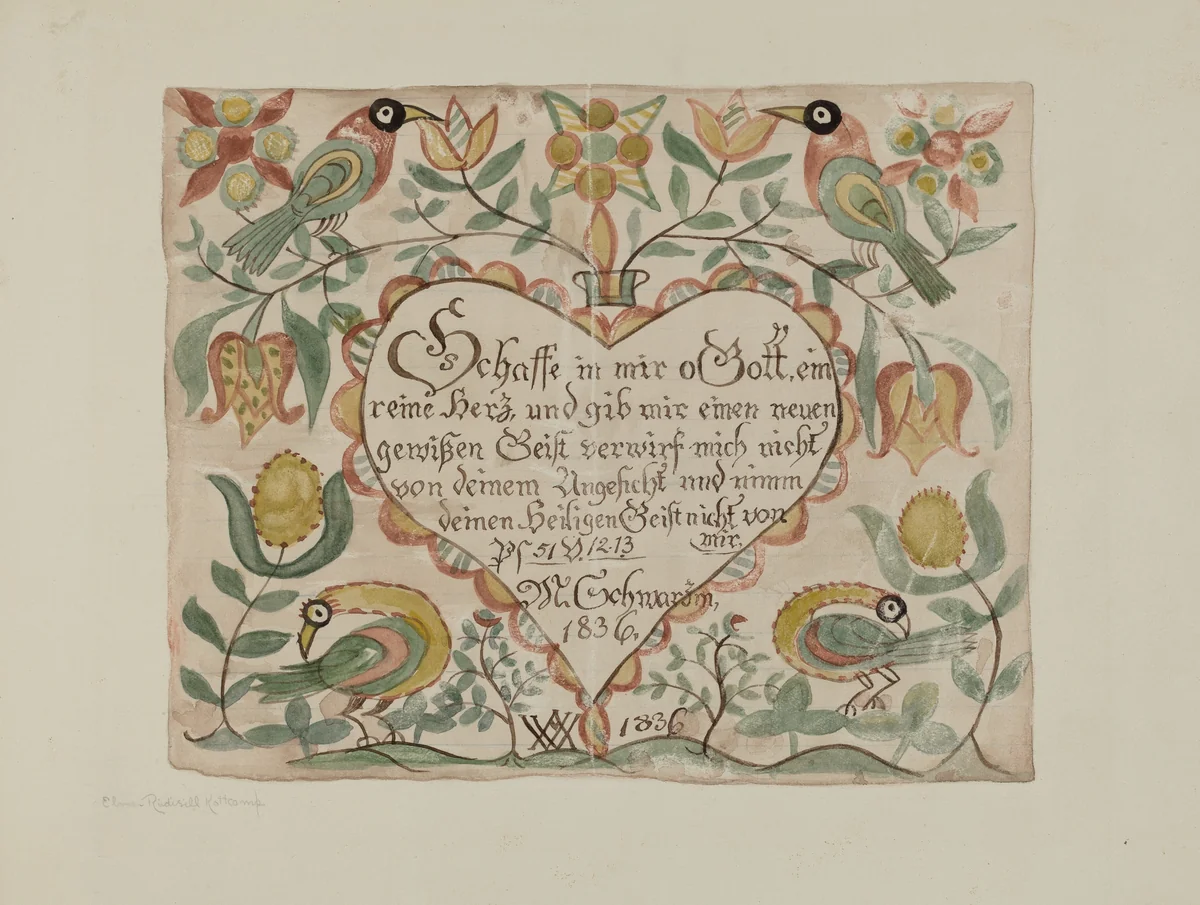 Schaffe in mir o Gott, ein
reine Herz, und gib mir einen neuen
gewißen Geist verwirf mich nicht
von deinem Angesicht und nimm
deinen Heiligen Geist nicht von
Ps 51 V. 12-13 mir.
M. Schwarzin,
1836.
1836